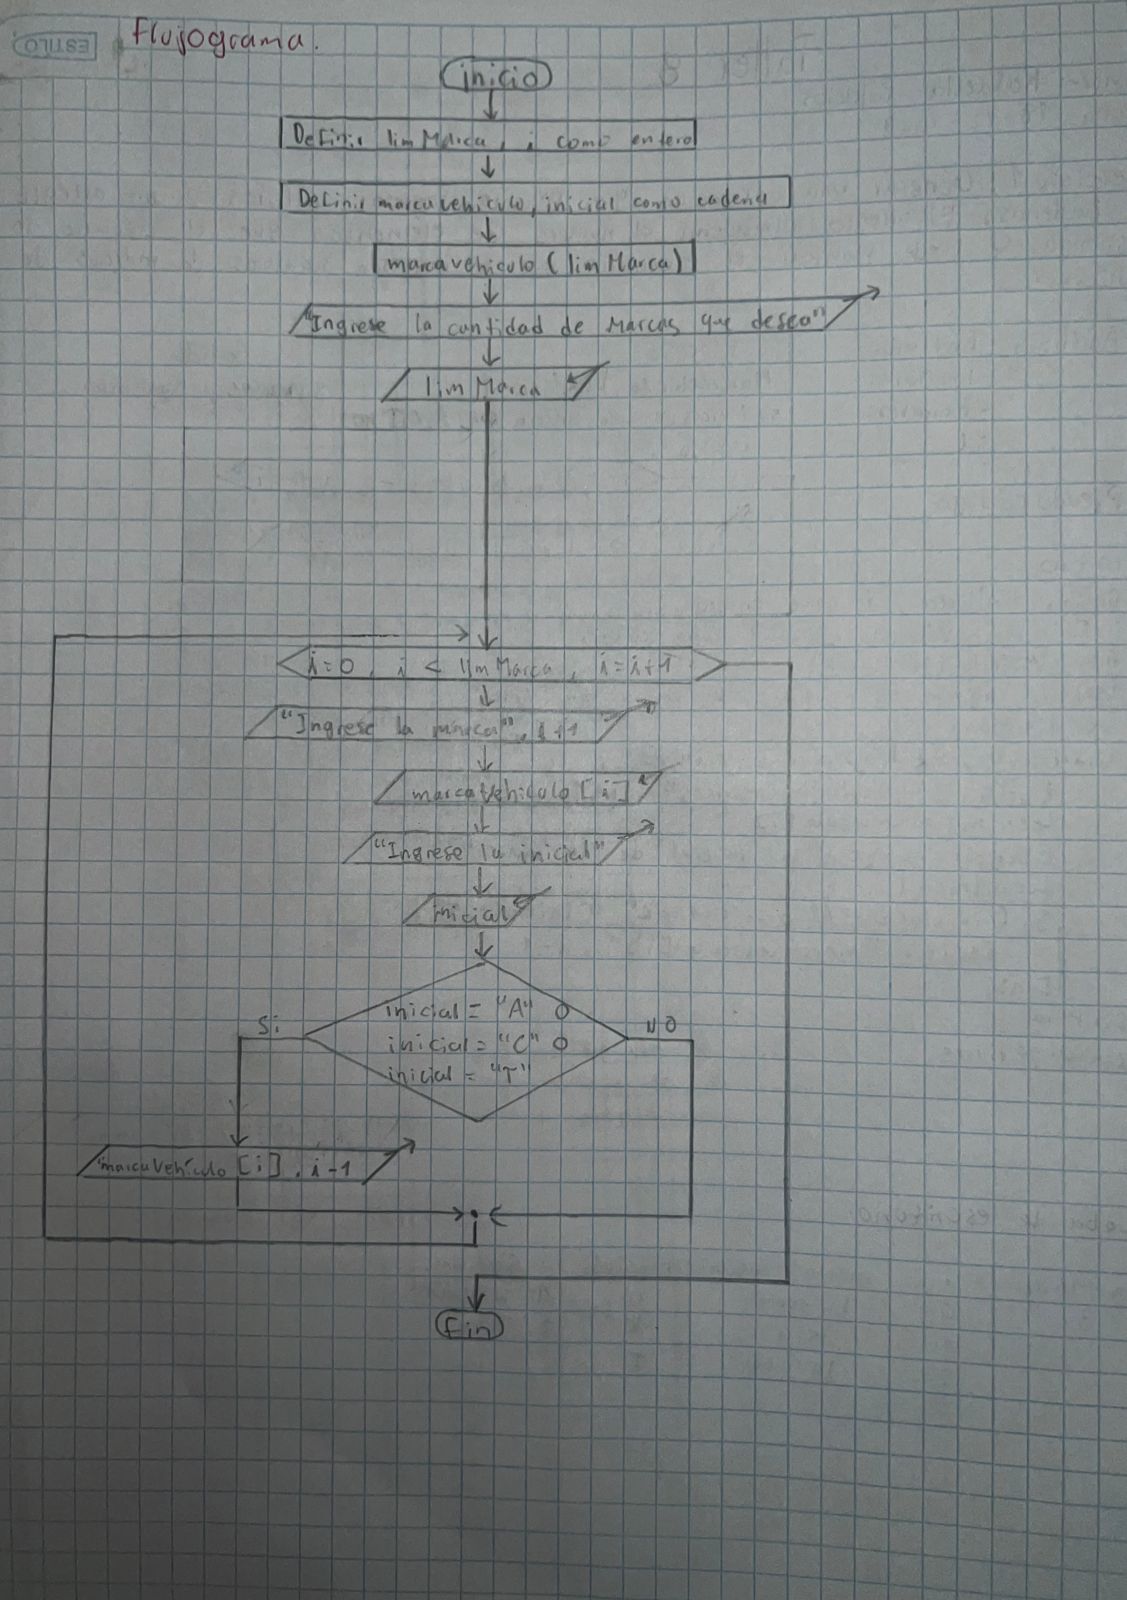 ESTILO
Flujograma.
inicio
Definir lim Marca, i como entero
Definir marcavehiculo, inicial como cadena
marcavehiculo (lim Marca)
"Ingrese la cantidad de Marcas que desea"
lim Marca
i=0, i < lim Marca, i=i+1
"Ingrese la marca", i+1
marcaVehiculo [i]
"Ingrese la inicial"
inicial
inicial = "A" O
Si
NO
inicial = "C" O
inicial = "T"
marcaVehículo [i], i-1
Fin